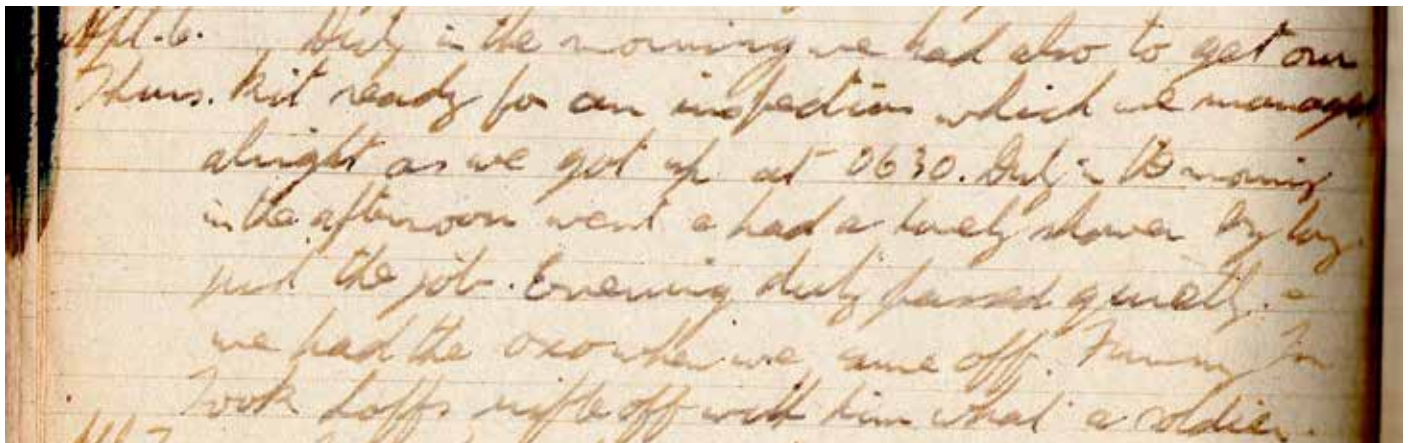 Apl. 6. Duty in the morning we had also to get our
Thurs. kit ready for an inspection which we managed
alright as we got up at 0630. Duty in the morning
in the afternoon went & had a lovely shower by
just the job. Evening duty passed quietly. &
we had the oxo when we came off. Funny
took Loffs rifle off with him what a soldier.